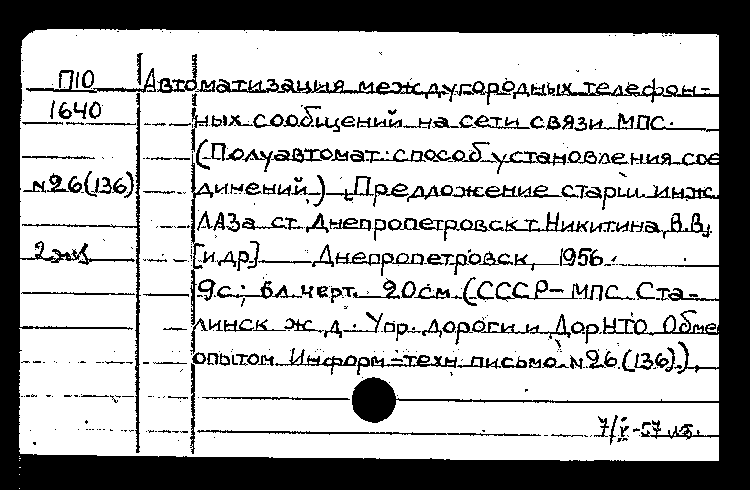 П10 Автоматизация междугородных телефон-
1640 ных сообщений на сети связи МПС.
(Полуавтомат. способ установления сое
№26(136) динений.) Предложение старш. инж.
ЛАЗа ст. Днепропетровск т. Никитина, В.В.,
2 экз [и др.] Днепропетровск, 1956.
9с.; вл. черт. 20см (СССР-МПС. Ста-
линск ж.д. Упр. дороги и ДорНТО. Обме
опытом. Информ.-техн. письмо. №26(136).)
7/V-57